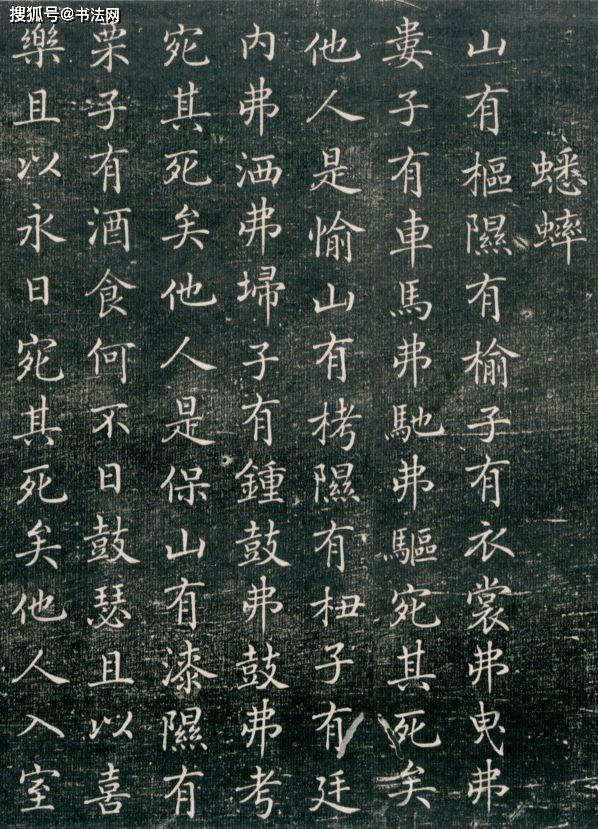 搜狐号@书法网
蟋蟀
山有樞隰有榆子有衣裳弗曳弗
婁子有車馬弗馳弗驅宛其死矣
他人是愉山有栲隰有杻子有廷
内弗洒弗埽子有鍾鼓弗鼓弗考
宛其死矣他人是保山有漆隰有
栗子有酒食何不日鼓瑟且以喜
樂且以永日宛其死矣他人入室